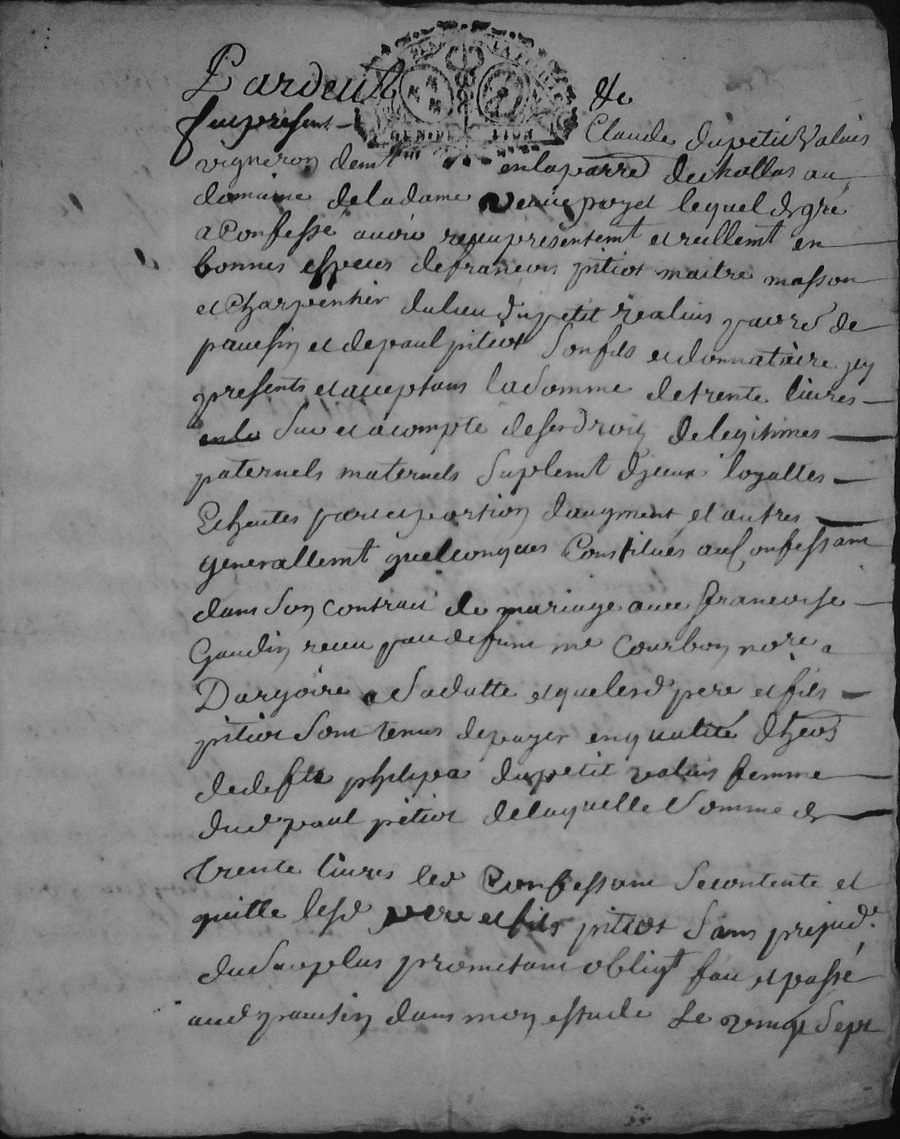 Pardeut &c
fut present Claude dupetit Valais
vigneron demt enlaparre dechollas au
domaine deladame poyet lequel degré
a Confessé avoir receu presentemt et reellemt en
bonnes especes defrancois pitiot maitre masson
et Charpentier dulieu dupetit parre de
et depaul pitiot son fils et donnataire jcy
presents et acceptans la somme detrente livres
et acompte desesdroits delegitimes
paternels maternels suplemt loyalles
Echeutes portion daugment et autres
generallemt quelconques Constitués au Confessant
dans son contrat de mariage avec francoise
Gaudin receu par defunt me Courbon nore a
Dargoire a sadatte et que lesd pere et fils
pitiot sont tenus depayer en qualité
dedefte du petit valais femme
dud paul pitiot delaquelle somme de
trente livres led Confessant secontente et
quitte lesd pere et fils pitiot sans prejude
dusurplus prometant obligt fait et passé
aud dans mon estude Le vingt sept